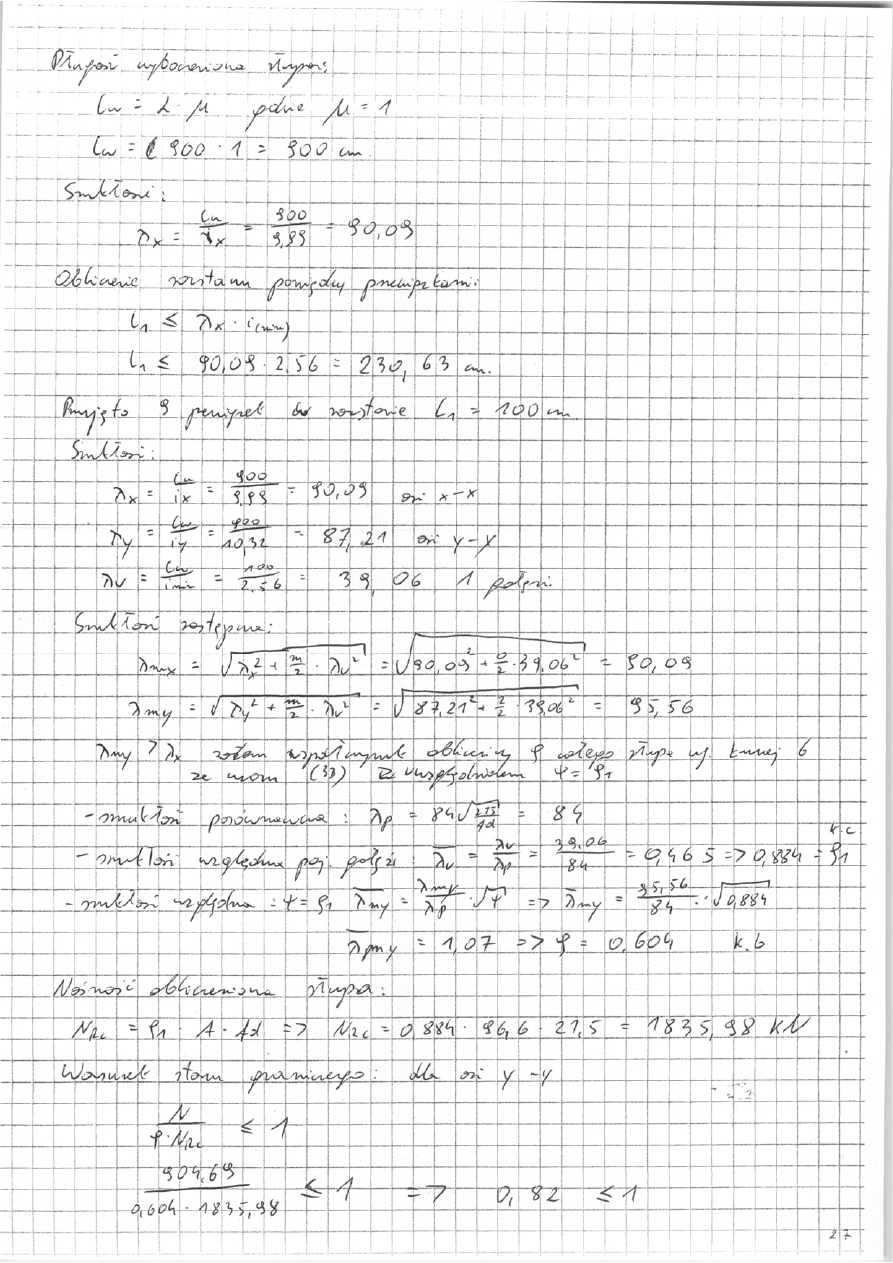 Długość wyboczeniowa słupa:
Lw = L · μ gdzie μ = 1
Lw = 900 · 1 = 900 cm.
Smukłości:
λx = Lw/ix = 900/9,99 = 90,09
Obliczenie rozstawu pomiędzy przewiązkami:
L1 ≤ λx · i(min)
L1 ≤ 90,09 · 2,56 = 230,63 cm.
Przyjęto 9 przewiązek w rozstawie L1 = 100 cm.
Smukłości:
λx = Lw/ix = 900/9,99 = 90,09 osi x-x
λy = Lw/iy = 900/10,32 = 87,21 osi y-y
λv = Lw/imin = 100/2,56 = 39,06 1 gałęzi.
Smukłość zastępcza:
λmx = √(λx² + m/2 · λv²) = √(90,09² + 0/2 · 39,06²) = 90,09
λmy = √(λy² + m/2 · λv²) = √(87,21² + 2/2 · 39,06²) = 95,56
λmy > λx zatem współczynnik obliczamy φ całego słupa wg. krzywej b
ze wzoru (33) z uwzględnieniem ψ = φ1
- smukłość porównawcza : λp = 84√(215/fd) = 84
- smukłość względna poj. gałęzi : λ̅v = λv/λp = 39,06/84 = 0,465 => 0,884 = φ1 k.c
- smukłość względna : ψ = φ1 λ̅my = λmy/λp · √ψ => λ̅my = 95,56/84 · √0,884
λ̅my = 1,07 => φ = 0,604 k.b
Nośność obliczeniowa słupa:
NRc = φ1 · A · fd => NRc = 0,884 · 96,6 · 21,5 = 1835,98 kN
Warunek stanu granicznego: dla osi y-y
N/(φ·NRc) ≤ 1
904,69/(0,604 · 1835,98) ≤ 1 => 0,82 ≤ 1
27